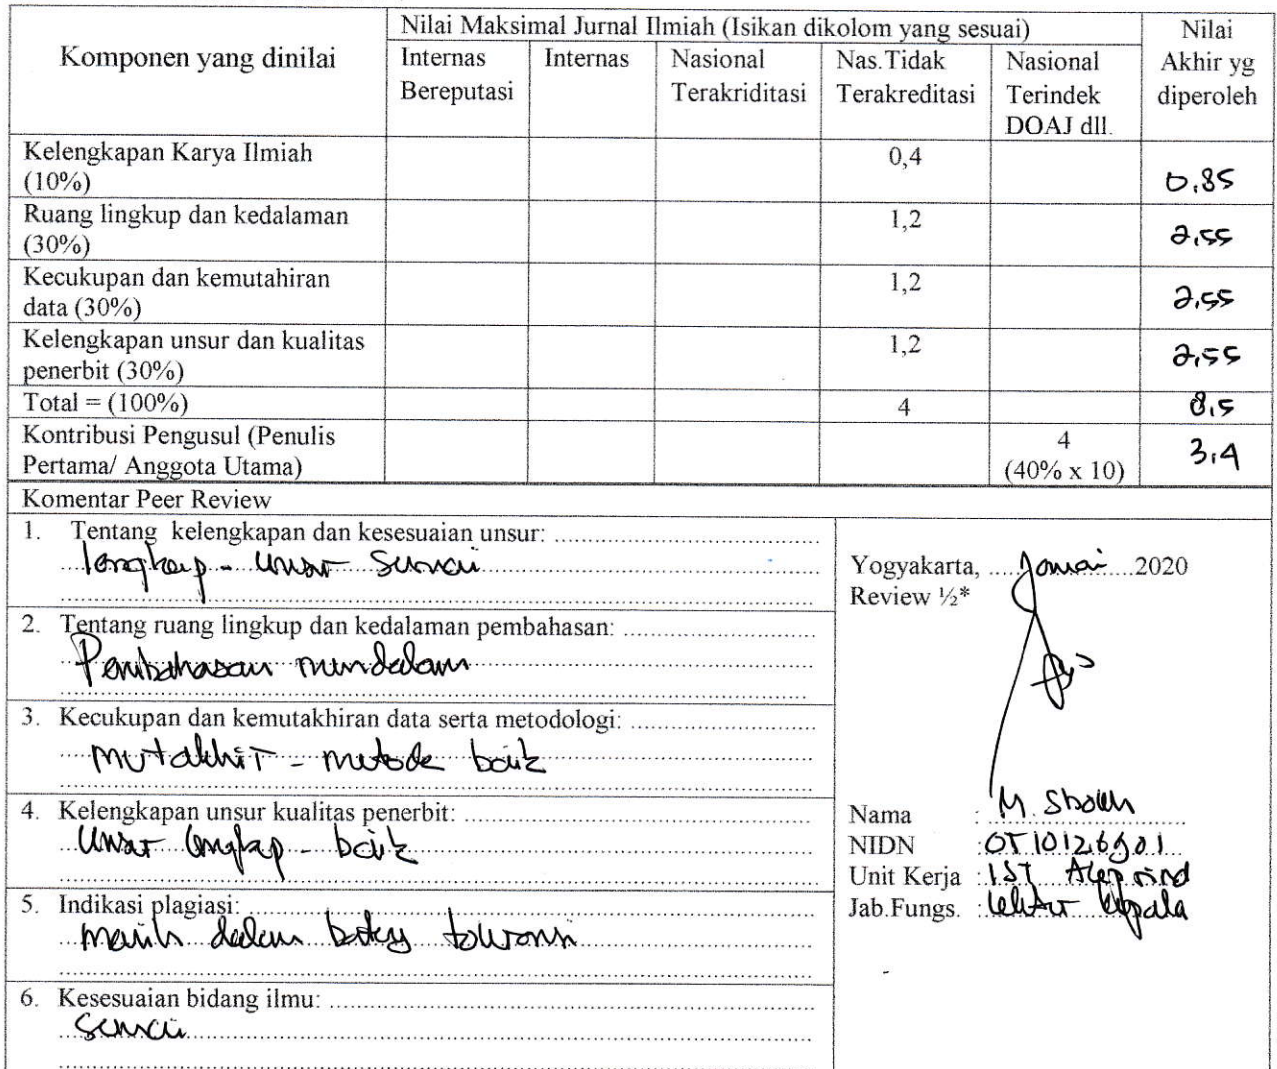 Komponen yang dinilai
Nilai Maksimal Jurnal Ilmiah (Isikan dikolom yang sesuai)
Nilai Akhir yg diperoleh
Internas Bereputasi
Internas
Nasional Terakriditasi
Nas.Tidak Terakreditasi
Nasional Terindek DOAJ dll.
Kelengkapan Karya Ilmiah
(10%)
0,4
0,85
Ruang lingkup dan kedalaman
(30%)
1,2
2,55
Kecukupan dan kemutahiran
data (30%)
1,2
2,55
Kelengkapan unsur dan kualitas
penerbit (30%)
1,2
2,55
Total = (100%)
4
8,5
Kontribusi Pengusul (Penulis
Pertama/ Anggota Utama)
4
(40% x 10)
3,4
Komentar Peer Review
1. Tentang kelengkapan dan kesesuaian unsur:
lengkap - unsur sesuai
2. Tentang ruang lingkup dan kedalaman pembahasan:
Pembahasan mendalam
3. Kecukupan dan kemutakhiran data serta metodologi:
mutakhir - metode baik
4. Kelengkapan unsur kualitas penerbit:
Unsur lengkap - baik
5. Indikasi plagiasi:
masih dalam batas toleransi
6. Kesesuaian bidang ilmu:
sesuai
Yogyakarta, 2020
Review ½*
Nama : M. Sholeh
NIDN :
Unit Kerja : IST Akprind
Jab.Fungs. : Lektor Kepala